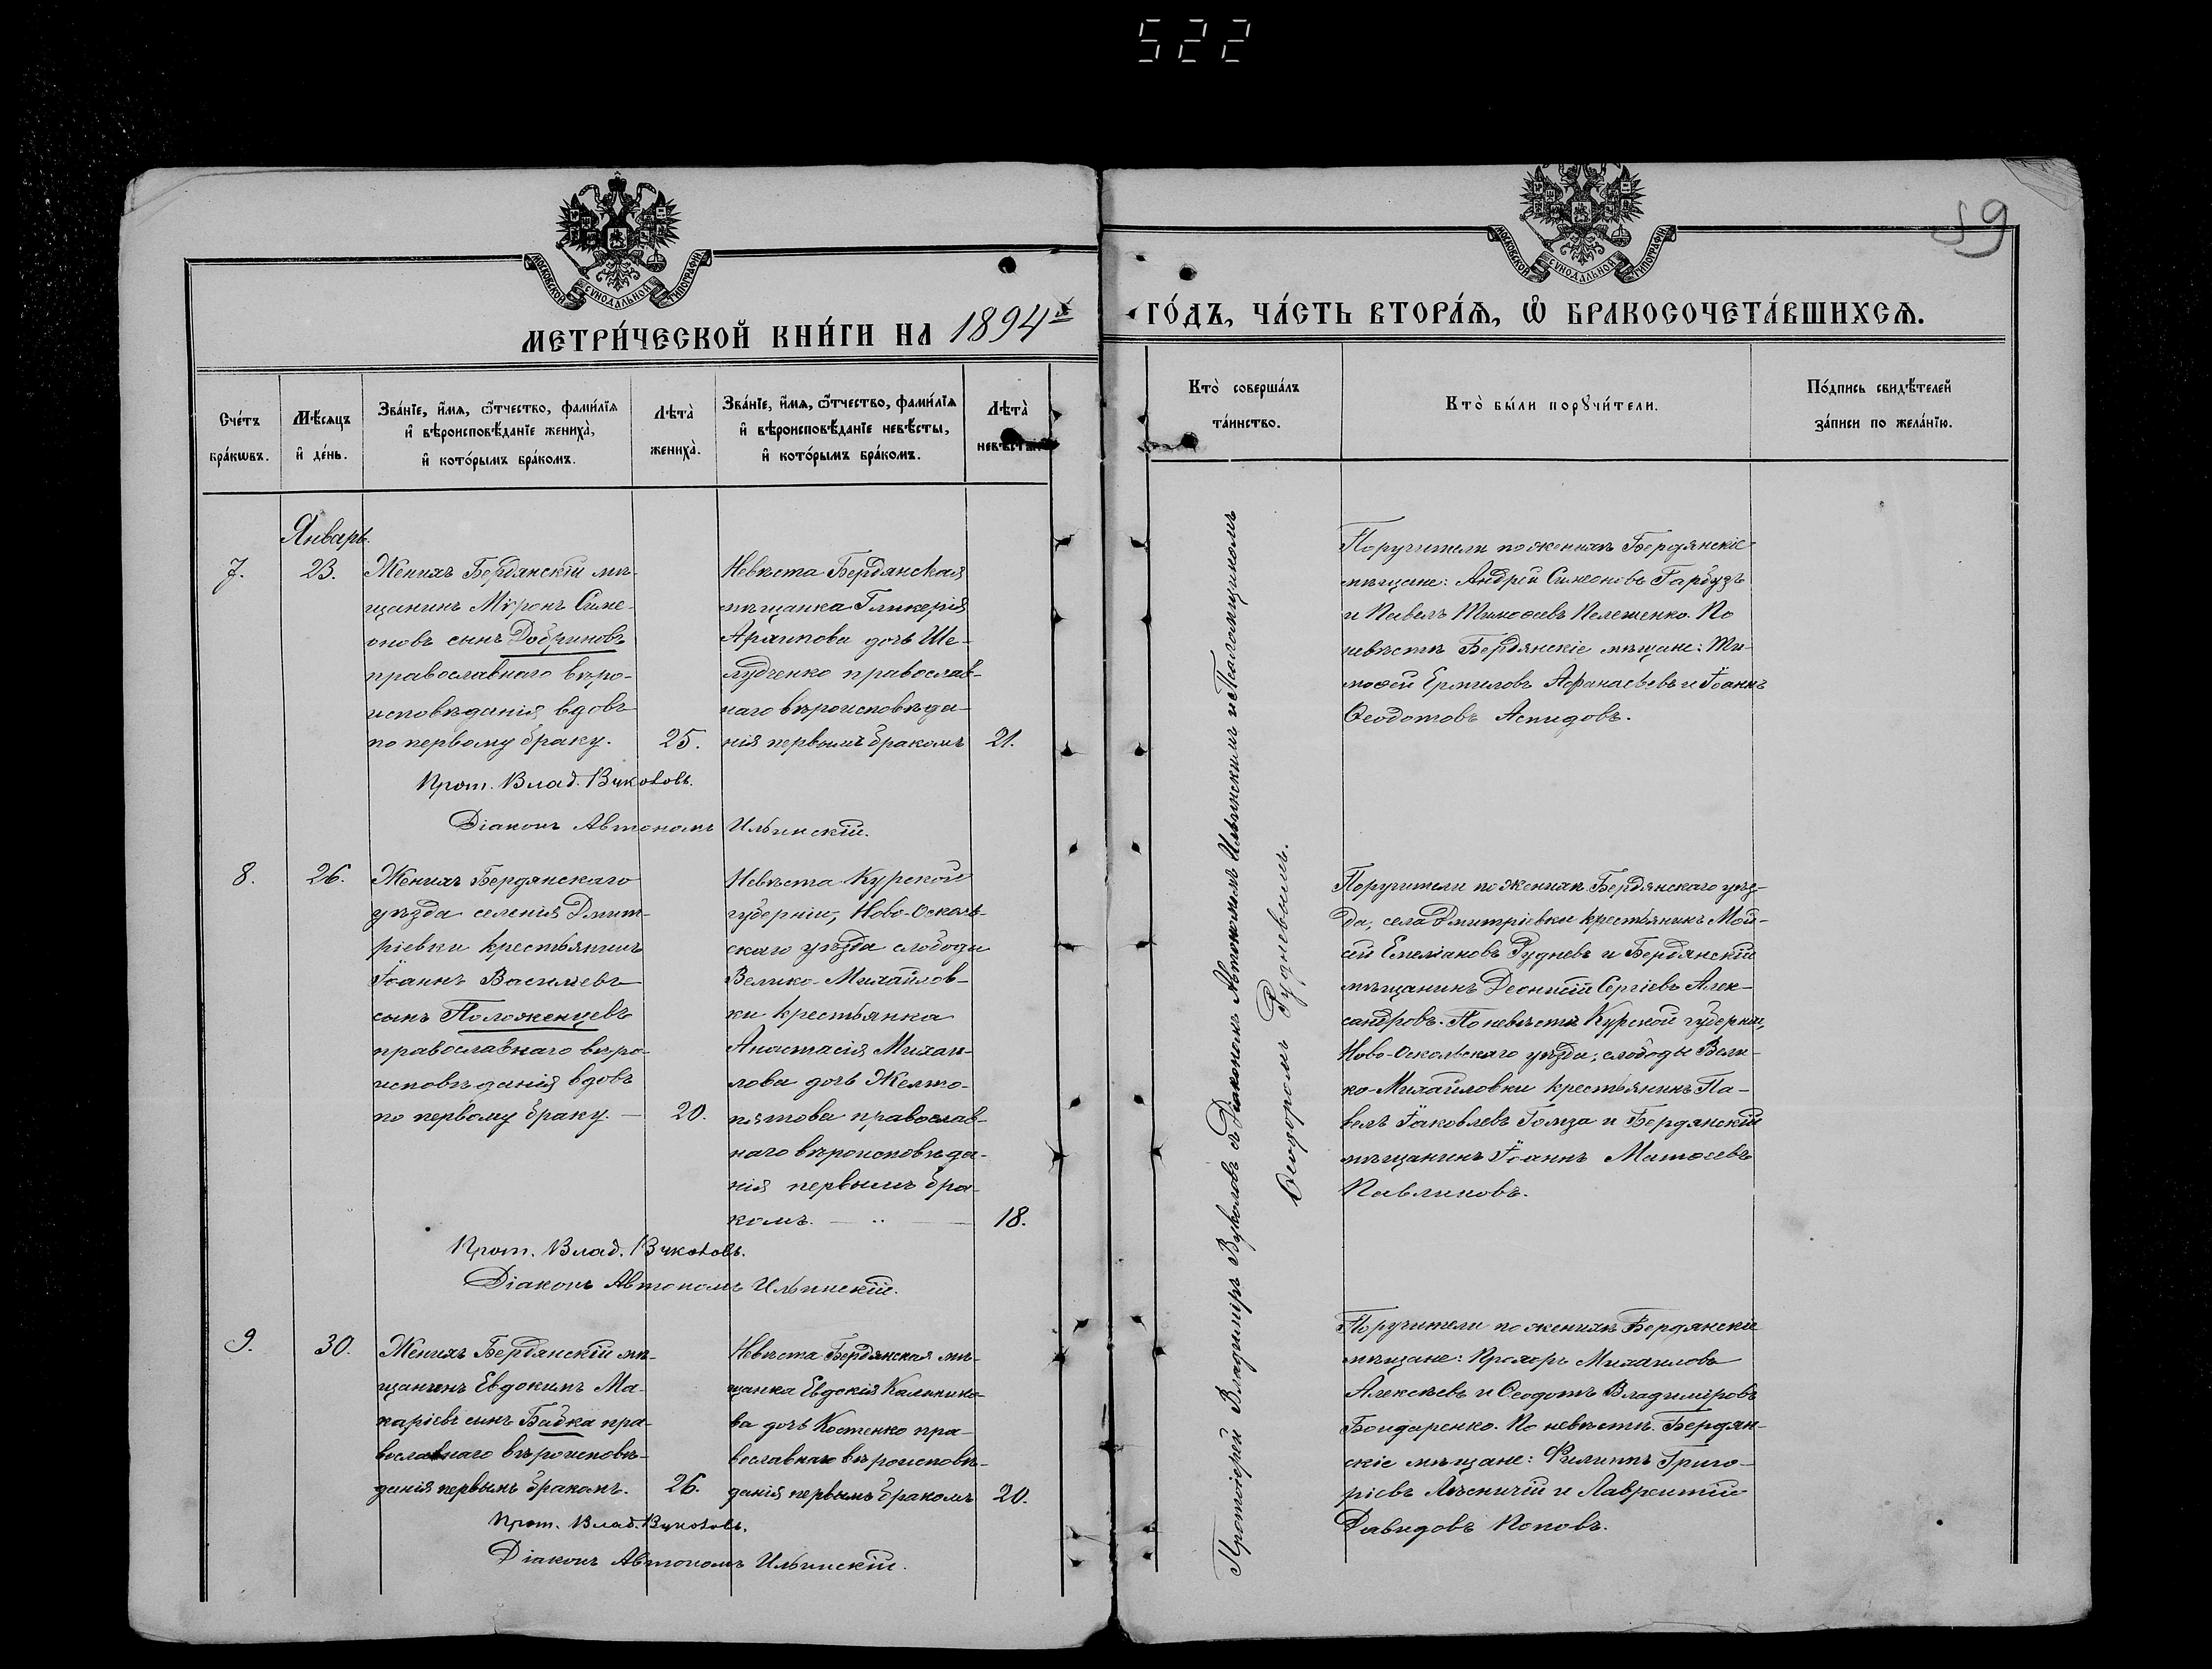 522
МОСКОВСКОЙ СѴНОДАЛЬНОЙ ТИПОГРАФІИ
МОСКОВСКОЙ СѴНОДАЛЬНОЙ ТИПОГРАФІИ
59
МЕТРИ́ЧЕСКОЙ КНИ́ГИ НА 1894й
ГО́ДЪ, ЧА́СТЬ ВТОРА́Ѧ, Ѡ БРАКОСОЧЕТА́ВШИХСѦ.
Сче́тъ бра́кѡвъ.
Мѣ́сяцъ и҆ де́нь.
Зва́нїе, и҆́мѧ, ѻ҆́тчество, фами́лїѧ
и҆ вѣроисповѣ́данїе жениха̀,
и҆ кото́рымъ бра́комъ.
Лѣта̀ жениха̀.
Зва́нїе, и҆́мѧ, ѻ҆́тчество, фами́лїѧ
и҆ вѣроисповѣ́данїе невѣ́сты,
и҆ кото́рымъ бра́комъ.
Лѣта̀ невѣ́сты.
Кто̀ соверша́лъ
та́инство.
Кто̀ бы́ли порꙋчи́тели.
По́дпись свидѣ́телей
за́писи по жела́нїю.
Январь.
7.
23.
Женихъ Бердянскій мѣ-
щанинъ Мѵронъ Симе-
оновъ сынъ Добриновъ
православнаго вѣро-
исповѣданія, вдовъ
по первому браку.
25.
Невѣста Бердянская
мѣщанка Гликерія
Архипова дочь Ше-
лудченко православ-
наго вѣроисповѣда-
нія первымъ бракомъ
21.
Прот. Влад. Вуколовъ.
Діаконъ Автономъ Ильинскій.
Поручители по женихѣ Бердянскіе
мѣщане: Андрей Симеоновъ Гарбузъ
и Павелъ Тимоѳеевъ Пелешенко. По
невѣстѣ Бердянскіе мѣщане: Ти-
моѳей Ермиловъ Афанасьевъ и Іоаннъ
Ѳеодотовъ Аспидовъ.
8.
26.
Женихъ Бердянскаго
уѣзда селенія Дмит-
ріевки крестьянинъ
Іоаннъ Васильевъ
сынъ Положенцевъ
православнаго вѣро-
исповѣданія вдовъ
по первому браку. —
20.
Невѣста Курской
губерніи, Ново-Осколь-
скаго уѣзда слободы
Велико-Михайлов-
ки крестьянка
Анастасія Михаи-
лова дочь Желто-
пятова православ-
наго вѣроисповѣда-
нія первымъ бра-
комъ.
18.
Прот. Влад. Вуколовъ.
Діаконъ Автономъ Ильинскій.
Поручители по женихѣ Бердянскаго уѣз-
да, села Дмитріевки крестьянинъ Мой-
сей Емеліановъ Рудневъ и Бердянскій
мѣщанинъ Діонисій Сергіевъ Алек-
сандровъ. По невѣстѣ Курской губерніи,
Ново-Оскольскаго уѣзда, слободы Вели-
ко-Михайловки крестьянинъ Па-
велъ Іаковлевъ Гомза и Бердянскій
мѣщанинъ Іоаннъ Матѳеевъ
Павликовъ.
9.
30.
Женихъ Бердянскій мѣ-
щанинъ Евдокимъ Ма-
каріевъ сынъ Бабка пра-
вославнаго вѣроисповѣ-
данія первымъ бракомъ.
26.
Невѣста Бердянская мѣ-
щанка Евдокія Калинико-
ва дочь Костенко пра-
вославнаго вѣроисповѣ-
данія первымъ бракомъ
20.
Прот. Влад. Вуколовъ.
Діаконъ Автономъ Ильинскій.
Поручители по женихѣ Бердянскіе
мѣщане: Прохоръ Михаиловъ
Алексѣевъ и Ѳеодотъ Владиміровъ
Бондаренко. По невѣстѣ Бердян-
скіе мѣщане: Филиппъ Григо-
ріевъ и Лаврентій
Давидовъ Поповъ.
Протоіерей Владиміръ Вуколовъ съ Діакономъ Автономомъ Ильинскимъ и Псаломщикомъ
Ѳеодоромъ Рудневымъ.